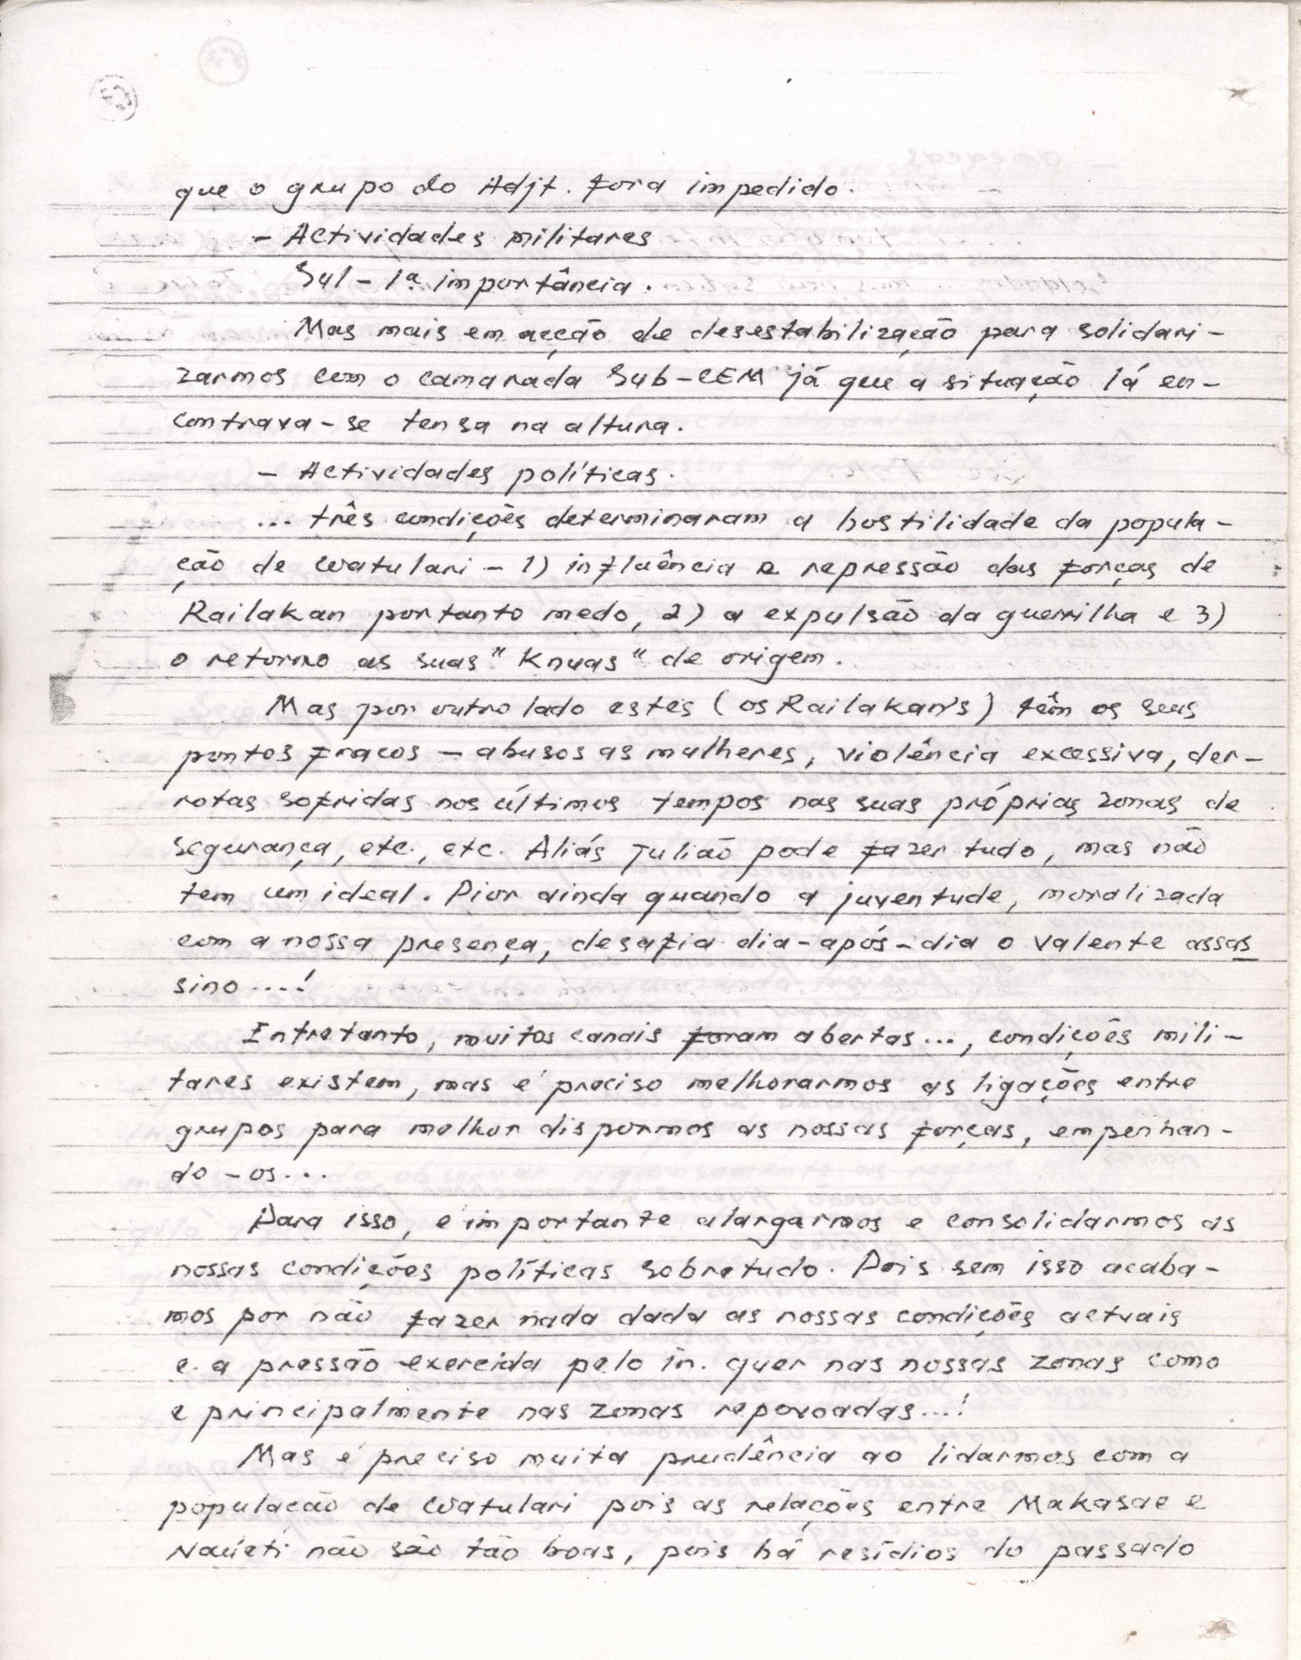 que o grupo do Adjt. fora impedido.
- Actividades militares
Sul - 1ª importância.
Mas mais em acção de desestabilização para solidari-
zarmos com o camarada Sub-CEM já que a situação lá en-
contrava-se tensa na altura.
- Actividades políticas.
... três condições determinaram a hostilidade da popula-
ção de Watulari - 1) influência e repressão das forças de
Railakan portanto medo, 2) a expulsão da guerrilha e 3)
o retorno as suas "Knuas" de origem.
Mas por outro lado estes (os Railakan's) têm os seus
pontos fracos - abusos as mulheres, violência excessiva, der-
rotas sofridas nos últimos tempos nas suas próprias zonas de
segurança, etc., etc. Aliás Julião pode fazer tudo, mas não
tem um ideal. Pior ainda quando a juventude, moralizada
com a nossa presença, desafia dia-após-dia o valente assas
sino....!
Entretanto, muitos canais foram abertas..., condições mili-
tares existem, mas é preciso melhorarmos as ligações entre
grupos para melhor dispormos as nossas forças, empenhan-
do-os...
Para isso, é importante alargarmos e consolidarmos as
nossas condições políticas sobretudo. Pois sem isso acaba-
mos por não fazer nada dada as nossas condições actuais
e a pressão exercida pelo in. quer nas nossas zonas como
e principalmente nas zonas repovoadas...!
Mas é preciso muita prudência ao lidarmos com a
população de Watulari pois as relações entre Makasae e
Naúeti não são tão boas, pois há resídios do passado